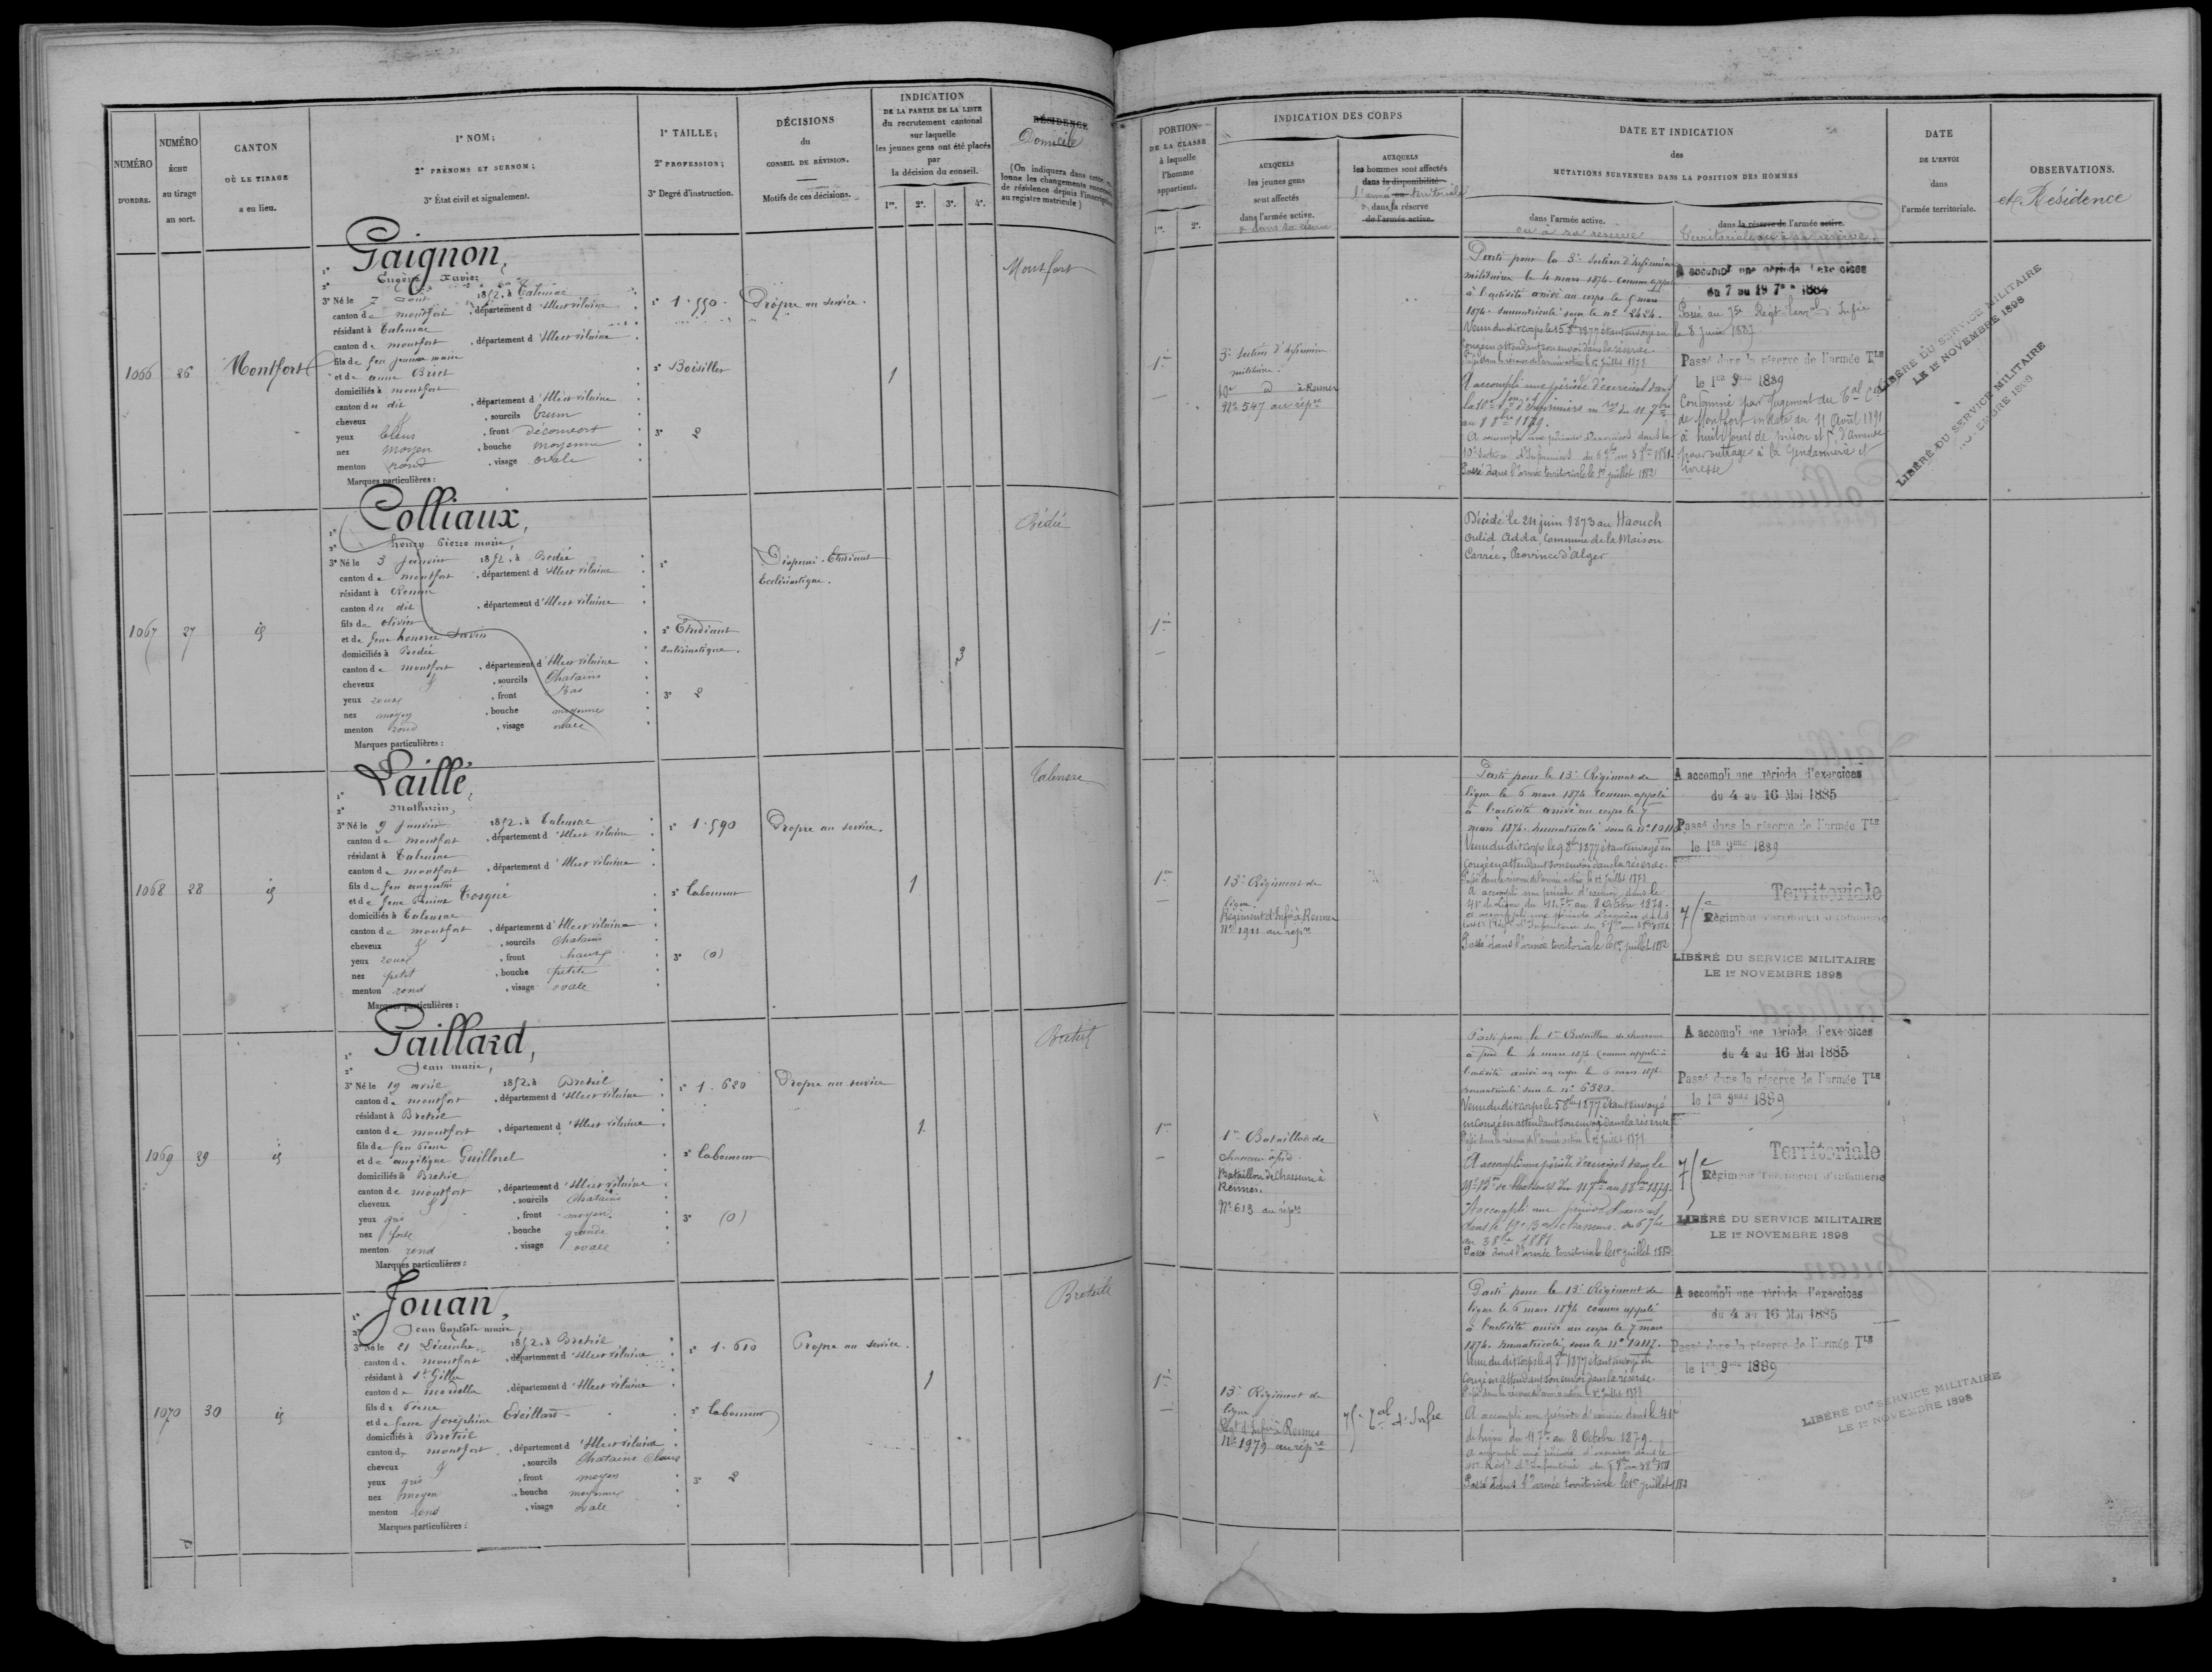 NUMÉRO
D'ORDRE.
NUMÉRO
ÉCHU
au tirage
au sort.
CANTON
OÙ LE TIRAGE
a eu lieu.
1° NOM;
2° PRÉNOMS ET SURNOM;
3° État civil et signalement.
1° TAILLE;
2° PROFESSION;
3° Degré d'instruction.
DÉCISIONS
du
CONSEIL DE RÉVISION.
Motifs de ces décisions.
INDICATION
DE LA PARTIE DE LA LISTE
du recrutement cantonal
sur laquelle
les jeunes gens ont été placés
par
la décision du conseil.
1re. 2e. 3e. 4e.
RÉSIDENCE
Domicile
(On indiquera dans cette
lonne les changements successifs
de résidence depuis l'inscription
au registre matricule)
PORTION
DE LA CLASSE
à laquelle
l'homme
appartient.
1re. 2e.
INDICATION DES CORPS
AUXQUELS
les jeunes gens
sont affectés
dans l'armée active.
& dans la réserve
AUXQUELS
les hommes sont affectés
dans la disponibilité
l'armée ou territoriale
& dans la réserve
de l'armée active.
DATE ET INDICATION
des
MUTATIONS SURVENUES DANS LA POSITION DES HOMMES
dans l'armée active.
ou à sa réserve
dans la réserve de l'armée active.
Territoriale ou à sa réserve
DATE
DE L'ENVOI
dans
l'armée territoriale.
OBSERVATIONS.
et Résidence
1066 26 Montfort
Gaignon,
Eugène Xavier
3° Né le 7 août 1852, à Talensac
canton de montfort, département d'Illeet vilaine
résidant à Talensac
canton de montfort, département d'Illeet vilaine
fils de feu jeanne marie
et de anne Briot
domiciliés à montfort
canton du dit, département d'Illeet vilaine
cheveux & sourcils brun
yeux bleus, front découvert
nez moyen, bouche moyenne
menton rond, visage ovale
Marques particulières :
1° 1.550.
2° Boisillier
3° 2
Propre au service.
1
Montfort
1re
3e Section d'infirmiers
militaire.
10e d à Rennes
No 547 au répre
Parti pour la 3e Section d'infirmiers
militaire le 4 mars 1874 comme appelé
à l'activité arrivé au corps le 5 mars
1874. immatriculé sous le no 2424.
Venu du dit corps le 5 8bre 1877 étant envoyé en
congé en attendant son envoi dans la réserve.
Passé dans la réserve de l'armée active le 1er Juillet 1878
A accompli une période d'exercices dans
la 10e Son d'Infirmiers mres du 11 7bre
au 8 8bre 1879.
A accompli une période d'exercices dans la
10e Section d'Infirmiers du 6 7bre au 3 8bre 1881
Passé dans l'armée territoriale le 1er juillet 1882
A accompli une période d'exercices
du 7 au 19 7bre 1884
Passé au 75e Régt terral d'Infie
le 8 Juin 1887
Passé dans la réserve de l'armée Tle
le 1er 9bre 1889
Condamné par Jugement du Tal Cel
de Montfort en date du 11 Août 1891
à huit jours de prison et 5f d'amende
pour outrage à la Gendarmerie et
ivresse
LIBÉRÉ DU SERVICE MILITAIRE
LE 1er NOVEMBRE 1898
LIBÉRÉ DU SERVICE MILITAIRE
1067 27 id
Colliaux,
henry Pierre marie,
3° Né le 3 Janvier 1852, à Bedée
canton de montfort, département d'Illeet vilaine
résidant à Rennes
canton du dit, département d'Illeet vilaine
fils de olivier
et de feue honorée
domiciliés à Bedée
canton de montfort, département d'Illeet vilaine
cheveux & sourcils Chatains
yeux roux, front Bas
nez moyen, bouche moyenne
menton rond, visage ovale
Marques particulières :
1°
2° Etudiant
Ecclésiastique.
3° 2
Dispensé. Etudiant
Ecclésiastique.
3
Bédée
1re
Décédé le 24 juin 1873 au Haouch
Oulid Adda, Commune de la Maison
Carrée, Province d'Alger
1068 28 id
Laillé,
Mathurin,
3° Né le 9 Janvier 1852, à Talensac
canton de montfort, département d'Illeet vilaine
résidant à Talensac
canton de montfort, département d'Illeet vilaine
fils de feu augustin
et de feue Perrine Cosqué
domiciliés à Talensac
canton de montfort, département d'Illeet vilaine
cheveux & sourcils Chatains
yeux roux, front haut
nez petit, bouche petite
menton rond, visage ovale
Marques particulières :
1° 1.590
2° Laboureur
3° (0)
Propre au service.
1
Talensac
1re
13e Régiment de
ligne
Régiment d'Infie à Rennes
No 1911 au répre
Parti pour le 13e Régiment de
ligne le 6 mars 1874 comme appelé
à l'activité arrivé au corps le 7
mars 1874. immatriculé sous le no 10118
Venu du dit corps le 9 8bre 1877 étant envoyé en
congé en attendant son envoi dans la réserve.
Passé dans la réserve de l'armée active le 1er Juillet 1878
A accompli une période d'exercices dans le
41e de Ligne du 11 7bre au 8 Octobre 1879.
Passé dans l'armée territoriale le 1er juillet 1882
A accompli une période d'exercices
du 4 au 16 Mai 1885
Passé dans la réserve de l'armée Tle
le 1er 9bre 1889
Territoriale
75e Régiment Territorial d'Infanterie
LIBÉRÉ DU SERVICE MILITAIRE
LE 1er NOVEMBRE 1898
1069 29 id
Gaillard,
Jean marie,
3° Né le 19 avril 1852, à Breteil
canton de montfort, département d'Illeet vilaine
résidant à Breteil
canton de montfort, département d'Illeet vilaine
fils de feu Pierre
et de angélique Guillorel
domiciliés à Breteil
canton de montfort, département d'Illeet vilaine
cheveux & sourcils Chatains
yeux gris, front moyen.
nez fort, bouche grande
menton rond, visage ovale
Marques particulières :
1° 1.620
2° Laboureur
3° (0)
Propre au service
1
Breteil
1re
1er Bataillon de
chasseurs à pied
Bataillon de Chasseurs à
Rennes.
No 613 au répre
Parti pour le 1er Bataillon de chasseurs
à pied le 4 mars 1874 comme appelé à
l'activité arrivé au corps le 6 mars 1874
immatriculé sous le no 6320.
Venu du dit corps le 5 8bre 1877 étant envoyé
en congé en attendant son envoi dans la réserve
Passé dans la réserve de l'armée active le 1er Juillet 1878
A accompli une période d'exercices dans le
19e Bon de Chasseurs du 11 7bre au 8 8bre 1879.
A accompli une période d'exercices
dans le 19e Bon de chasseurs du 6 7bre
au 3 8bre 1881
Passé dans l'armée territoriale le 1er juillet 1882
A accompli une période d'exercices
du 4 au 16 Mai 1885
Passé dans la réserve de l'armée Tle
le 1er 9bre 1889
Territoriale
75e Régiment Territorial d'Infanterie
LIBÉRÉ DU SERVICE MILITAIRE
LE 1er NOVEMBRE 1898
1070 30 id
Jouan,
Jean baptiste marie,
3° Né le 21 Décembre 1852, à Breteil
canton de montfort, département d'Illeet vilaine
résidant à St Gilles
canton de mordelles, département d'Illeet vilaine
fils de Pierre
et de feue Joséphine Eveillard
domiciliés à Breteil
canton de montfort, département d'Illeet vilaine
cheveux & sourcils Chatains Clairs
yeux gris, front moyen
nez moyen, bouche moyenne
menton rond, visage ovale
Marques particulières :
1° 1.610
2° Laboureur
3° 2
Propre au service.
1
Breteil
1re
13e Régiment de
ligne
Régt d'Infie à Rennes
No 1979 au répre
75e Tal d'Infie
Parti pour le 13e Régiment de
ligne le 6 mars 1874 comme appelé
à l'activité arrivé au corps le 7 mars
1874. immatriculé sous le no 10117.
Venu du dit corps le 9 8bre 1877 étant envoyé en
congé en attendant son envoi dans la réserve.
Passé dans la réserve de l'armée active le 1er Juillet 1878
A accompli une période d'exercices dans le 41e
de ligne du 11 7bre au 8 Octobre 1879.
A accompli une période d'exercices dans le
41e Régt d'Infanterie du 6 7bre au 3 8bre 1881
Passé dans l'armée territoriale le 1er juillet 1882
A accompli une période d'exercices
du 4 au 16 Mai 1885
Passé dans la réserve de l'armée Tle
le 1er 9bre 1889
LIBÉRÉ DU SERVICE MILITAIRE
LE 1er NOVEMBRE 1898